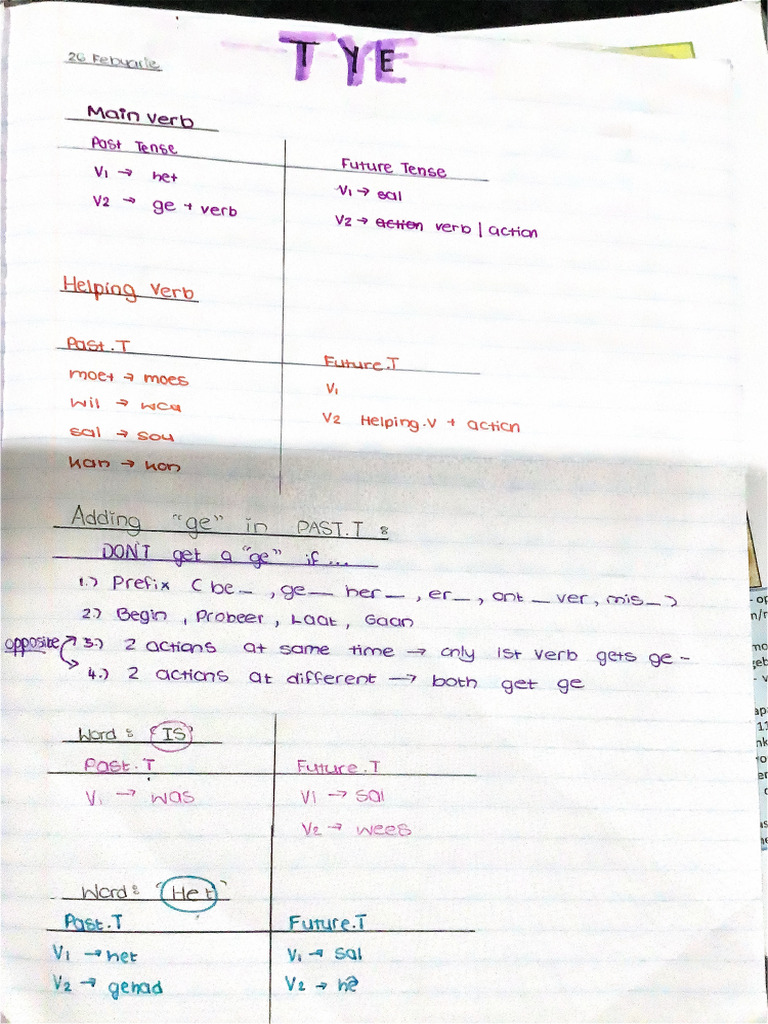 TYE
26 Febuarie
Main verb
Past Tense
V1 → het
V2 → ge + verb
Future Tense
V1 → sal
V2 → action verb | action
Helping verb
Past.T
moet → moes
wil → wou
sal → sou
kan → kon
Future.T
V1
V2 Helping.V + action
Adding "ge" in PAST.T :
DON'T get a "ge" if...
1.) Prefix ( be_ , ge_ her_ , er_ , ont_ ver, mis_ )
2.) Begin , Probeer , Laat , Gaan
opposite 3.) 2 actions at same time → only 1st verb gets ge -
4.) 2 actions at different → both get ge
Word : "IS"
Past.T
V1 → was
Future.T
V1 → sal
V2 → wees
Word : "Het"
Past.T
V1 → het
V2 → gehad
Future.T
V1 → sal
V2 → hê